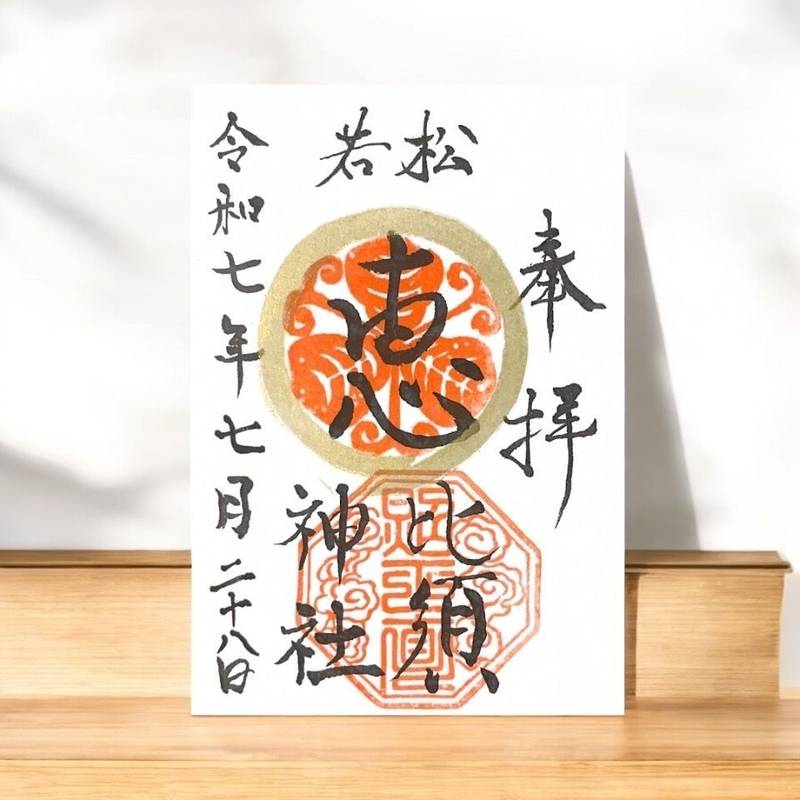 奉拝
若松
恵
比須
神社
令和七年七月二十八日